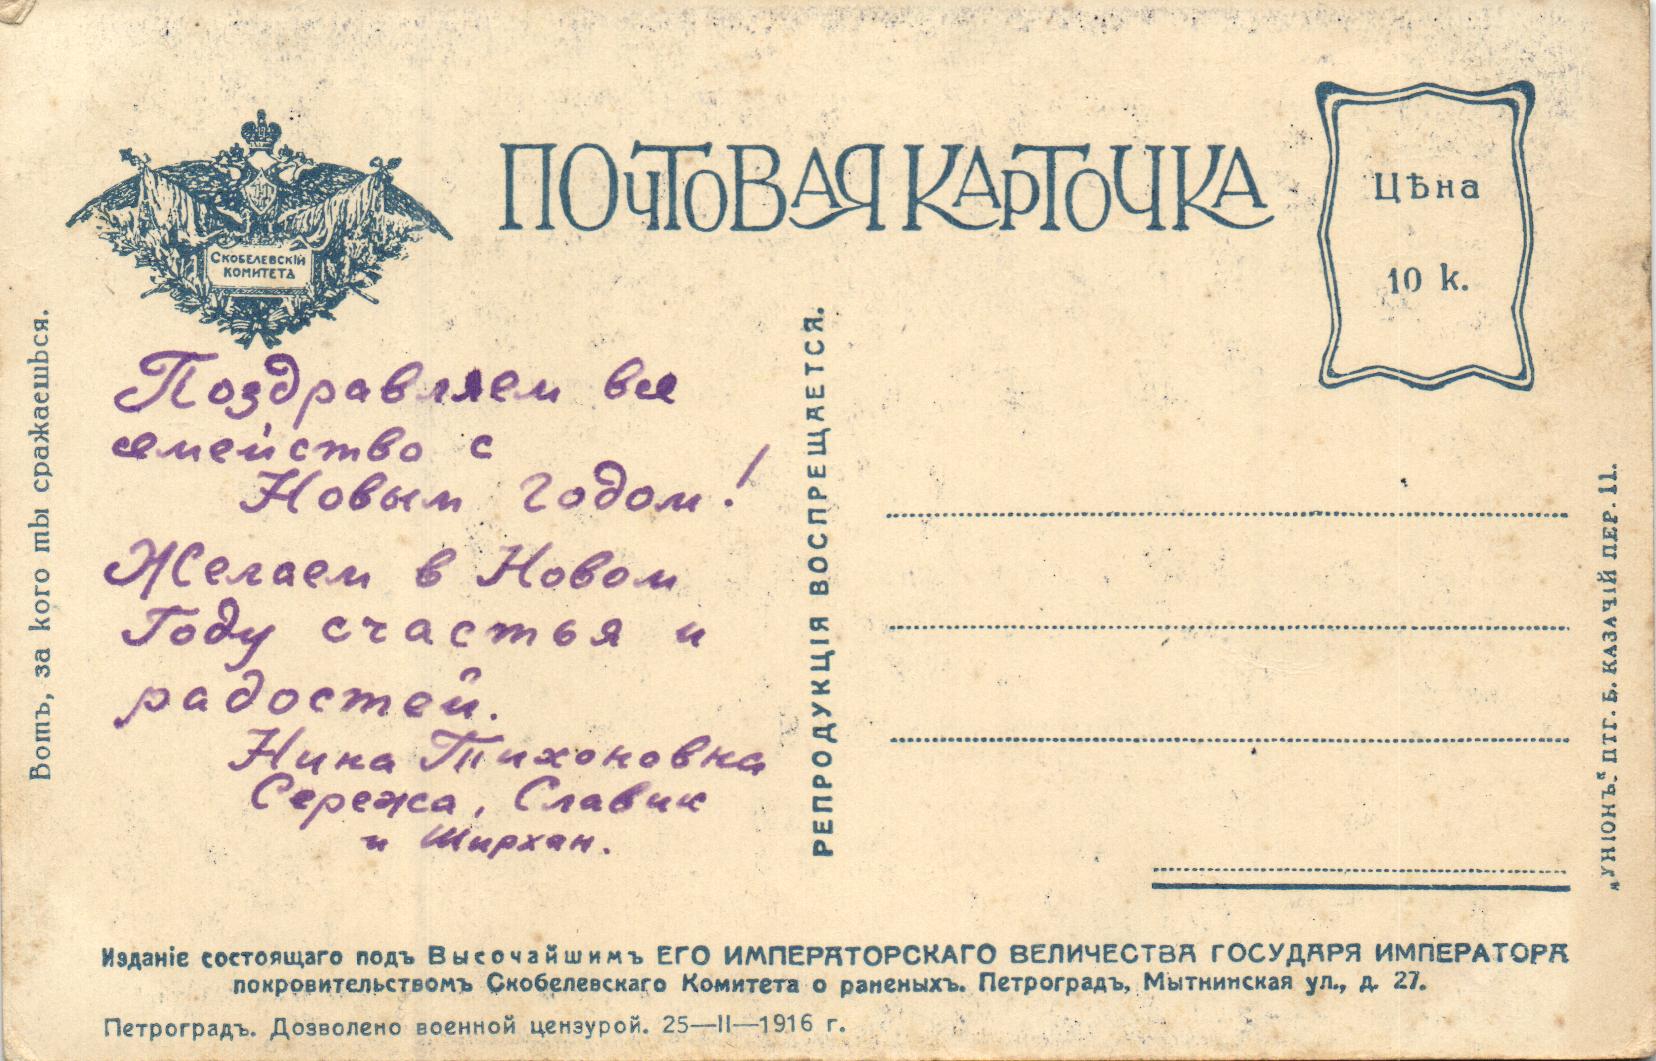 Скобелевскій
комитетъ
ПОЧТОВАЯ КАРТОЧКА
Цѣна
10 к.
Вотъ, за кого ты сражаешься.
Поздравляем все
семейство с
Новым годом!
Желаем в Новом
Году счастья и
радостей.
Нина Тихоновна
Сережа, Славик
и Ширхан.
РЕПРОДУКЦІЯ ВОСПРЕЩАЕТСЯ.
„УНІОНЪ.“ ПТГ. Б. КАЗАЧІЙ ПЕР. 11.
Изданіе состоящаго подъ Высочайшимъ ЕГО ИМПЕРАТОРСКАГО ВЕЛИЧЕСТВА ГОСУДАРЯ ИМПЕРАТОРА
покровительствомъ Скобелевскаго Комитета о раненыхъ. Петроградъ, Мытнинская ул., д. 27.
Петроградъ. Дозволено военной цензурой. 25—II—1916 г.